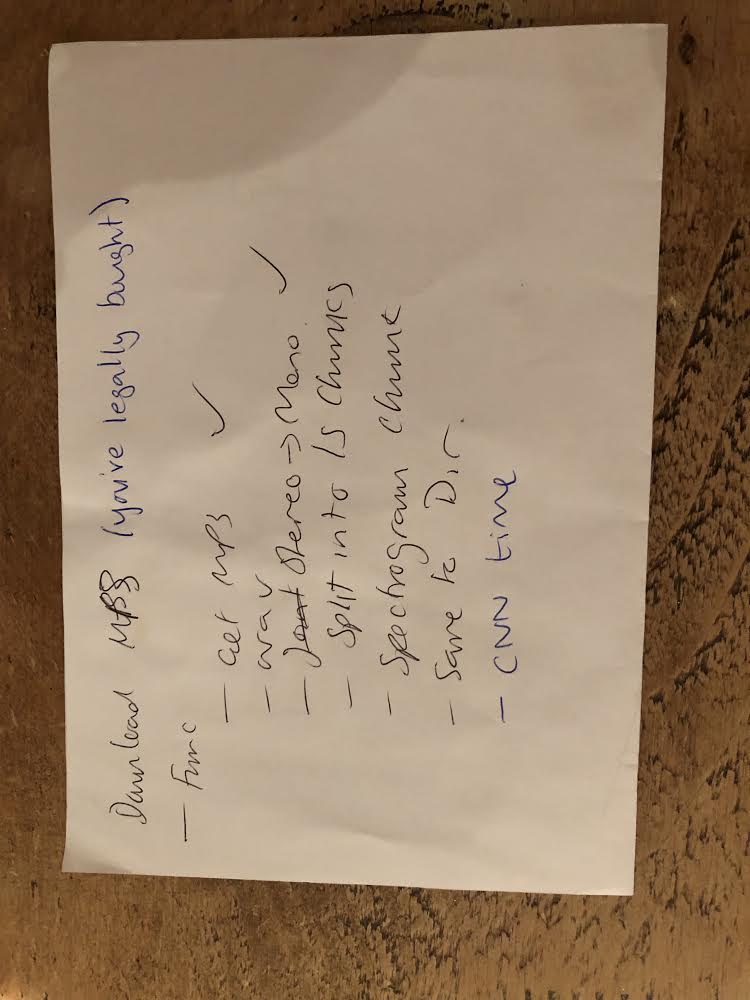 Download MP3 (you've legally bought)
- Func
- Get MP3 ✓
- wav
- Stereo -> Mono. ✓
- Split into 1s Chunks
- Spectrogram Chunk
- Save to Dir.
- CNN time